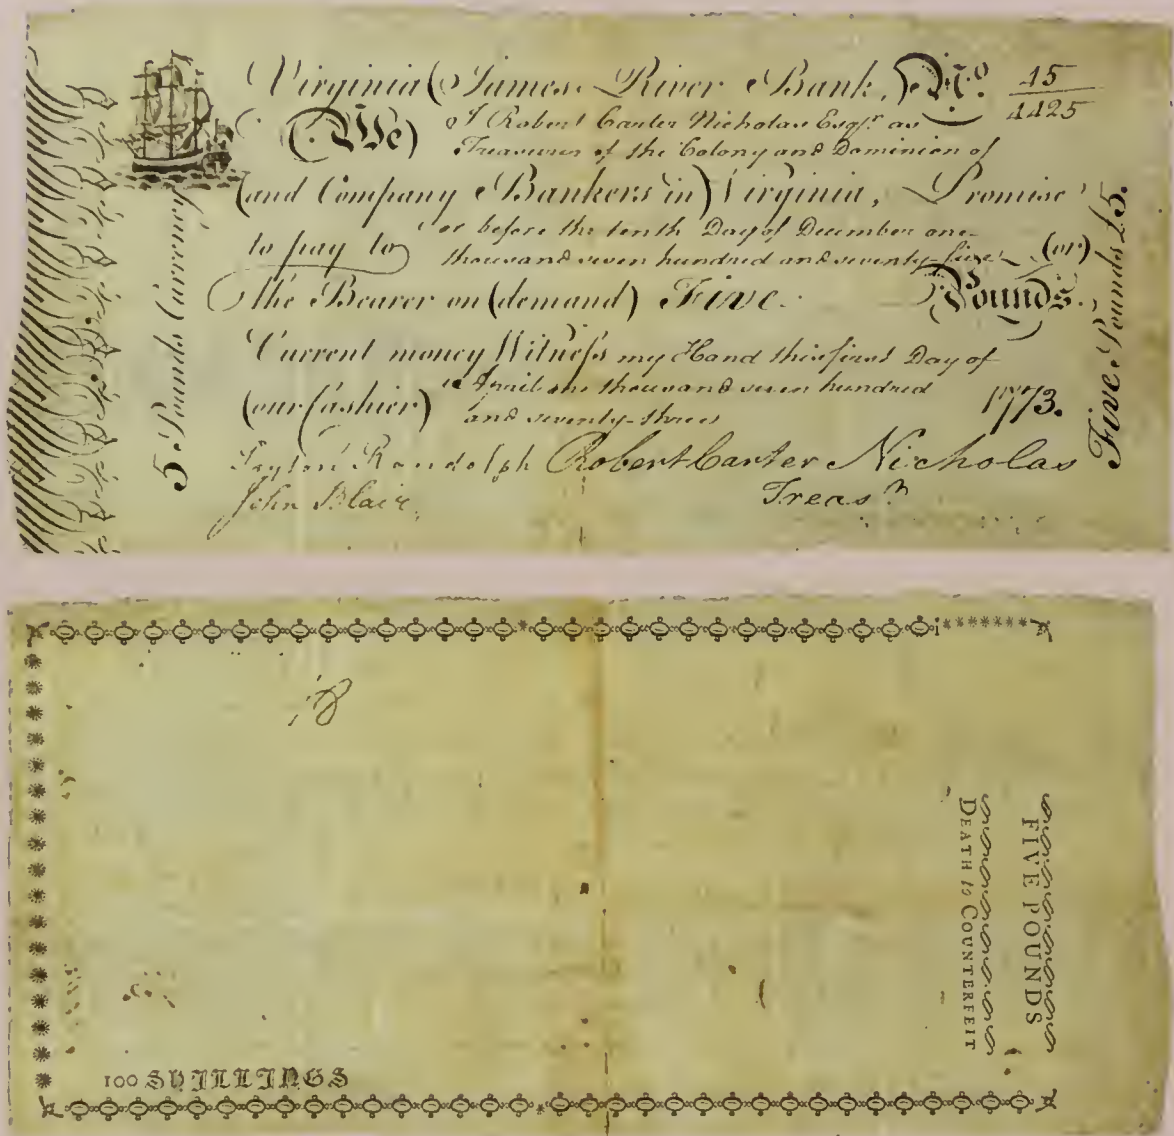 Virginia (James River Bank,) No. 15
4425
(We) I Robert Carter Nicholas Esqr. as
Treasurer of the Colony and Dominion of
(and Company Bankers in) Virginia, Promise
to pay to or before the tenth Day of December one
thousand seven hundred and seventy-five (or)
the Bearer on (demand) Five Pounds.
Current money Witness my Hand this first Day of
April one thousand seven hundred
(our Cashier) and seventy-three 1773.
Peyton Randolph Robert Carter Nicholas
John Blair. Treasr.
5 Pounds Currency.
Five Pounds £5.
FIVE POUNDS
DEATH to COUNTERFEIT
100 SHILLINGS